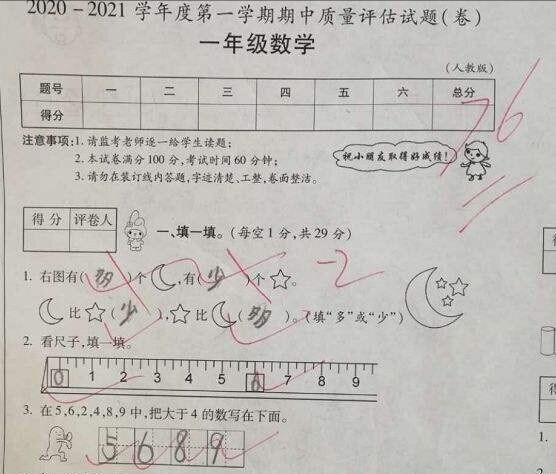 2020-2021学年度第一学期期中质量评估试题(卷)
一年级数学
(人教版)
题号 一 二 三 四 五 六 总分
得分
76
注意事项:1.请监考老师逐一给学生读题;
2.本试卷满分100分,考试时间60分钟;
3.请勿在装订线内答题,字迹清楚、工整,卷面整洁。
祝小朋友取得好成绩!
得分 评卷人
一、填一填。(每空1分,共29分)
-2
1.右图有(多)个,有(少)个。
比(少),比(多)。(填“多”或“少”)
2.看尺子,填一填。
0 1 2 3 4 5 6 7 8 9
3.在5,6,2,4,8,9中,把大于4的数写在下面。
5 6 8 9